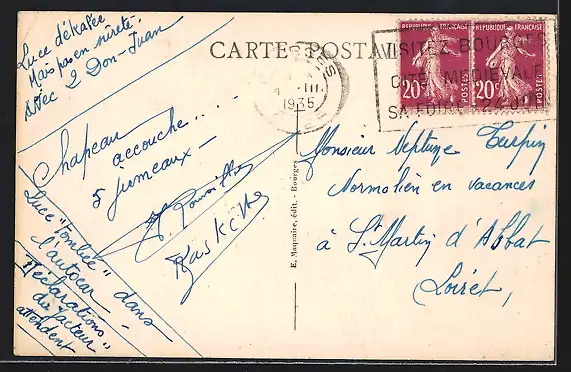 Luce dékalée
Mais pas en nireté
Avec 2 Don-Juan
CARTE POSTALE
Chapeau
accouche.....
5 jumeaux -
Kaskett
Luce "Tombée" dans
l'autocar
"Déclarations
du facteur"
attendent
E. Maquaire, édit. - Bourges
4 - III
1935
VISITEZ BOURGES
CITÉ MÉDIÉVALE
SA FOIRE 24 JUIN
REPUBLIQUE FRANÇAISE
20c
POSTES
REPUBLIQUE FRANÇAISE
20c
POSTES
Monsieur Neptune Turpin
Normalien en vacances
à St. Martin d'Abbat
Loiret,